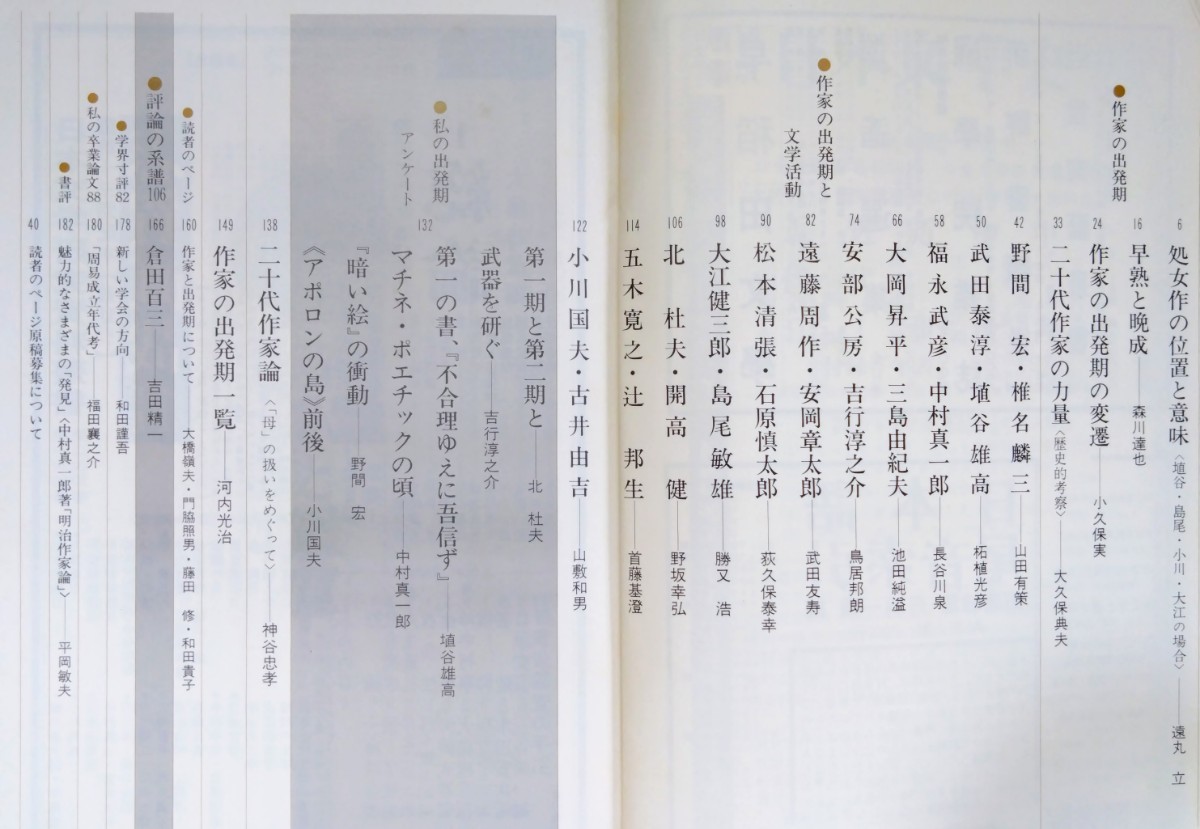 ●作家の出発期
6 処女作の位置と意味〈埴谷・島尾・小川・大江の場合〉――遠丸 立
16 早熟と晩成――森川達也
24 作家の出発期の変遷――小久保実
33 二十代作家の力量〈歴史的考察〉――大久保典夫
●作家の出発期と
文学活動
42 野間 宏・椎名麟三――山田有策
50 武田泰淳・埴谷雄高――柘植光彦
58 福永武彦・中村真一郎――長谷川泉
66 大岡昇平・三島由紀夫――池田純溢
74 安部公房・吉行淳之介――鳥居邦朗
82 遠藤周作・安岡章太郎――武田友寿
90 松本清張・石原慎太郎――荻久保泰幸
98 大江健三郎・島尾敏雄――勝又 浩
106 北 杜夫・開高 健――野坂幸弘
114 五木寛之・辻 邦生――首藤基澄
122 小川国夫・古井由吉――山敷和男
●私の出発期
アンケート
132
第一期と第二期と――北 杜夫
武器を研ぐ――吉行淳之介
第一の書、『不合理ゆえに吾信ず』――埴谷雄高
マチネ・ポエチックの頃――中村真一郎
『暗い絵』の衝動 野間 宏
《アポロンの島》前後――小川国夫
138 二十代作家論〈「母」の扱いをめぐって〉――神谷忠孝
149 作家の出発期一覧――河内光治
●読者のページ
160 作家と出発期について――大橋嶺夫・門脇照男・藤田 修・和田貴子
●評論の系譜106
166 倉田百三――吉田精一
●学界寸評82
178 新しい学会の方向――和田謹吾
●私の卒業論文88
180 「周易成立年代考」――福田襄之介
●書評
182 魅力的なさまざまの「発見」〈中村真一郎著「明治作家論」〉 平岡敏夫
40 読者のページ原稿募集について